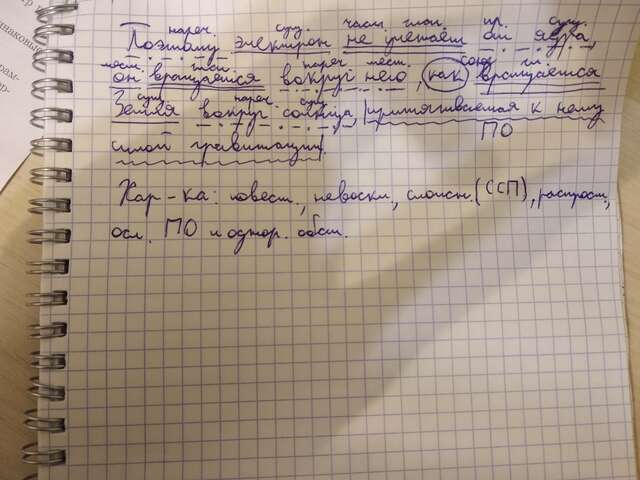 нареч. сущ. част. глаг. пр. сущ.
Поэтому электрон не улетает от ядра,
мест. глаг. нареч. мест. союз гл.
он вращается вокруг него, как вращается
сущ. нареч. сущ.
Земля вокруг солнца, притягиваемая к нему
ПО
силой гравитации.
Хар-ка: повест., невоскл., сложн. (ССП), распрост.,
осл. ПО и однор. обст.